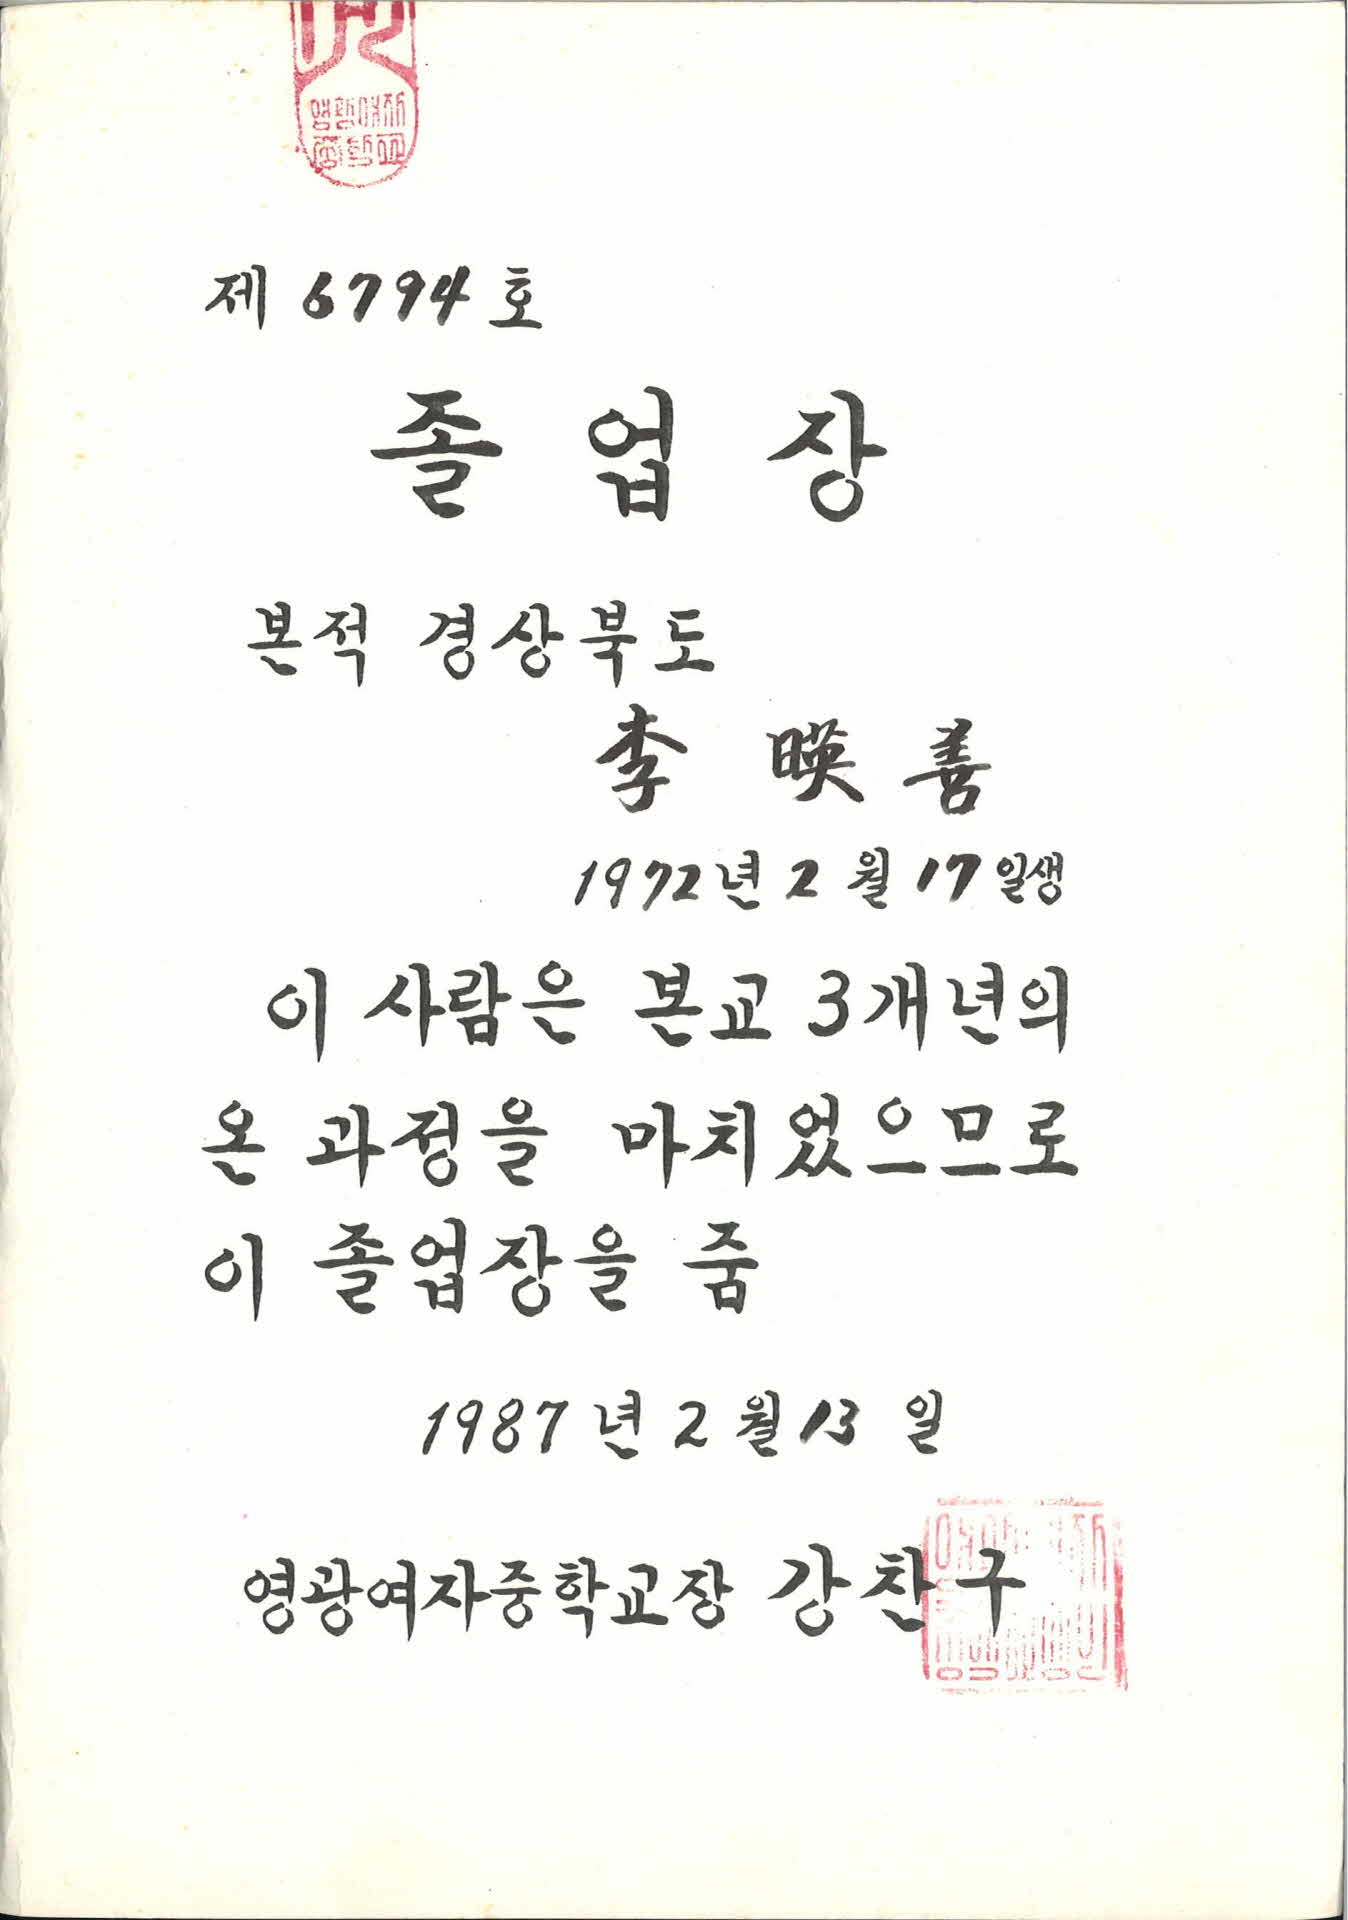 영광여자
중학교
제 6794 호
졸 업 장
본적 경상북도
李 暎 善
1972년 2 월 17 일생
이 사람은 본교 3개년의
온 과정을 마치었으므로
이 졸업장을 줌
1987 년 2 월 13 일
영광여자중학교장 강찬구